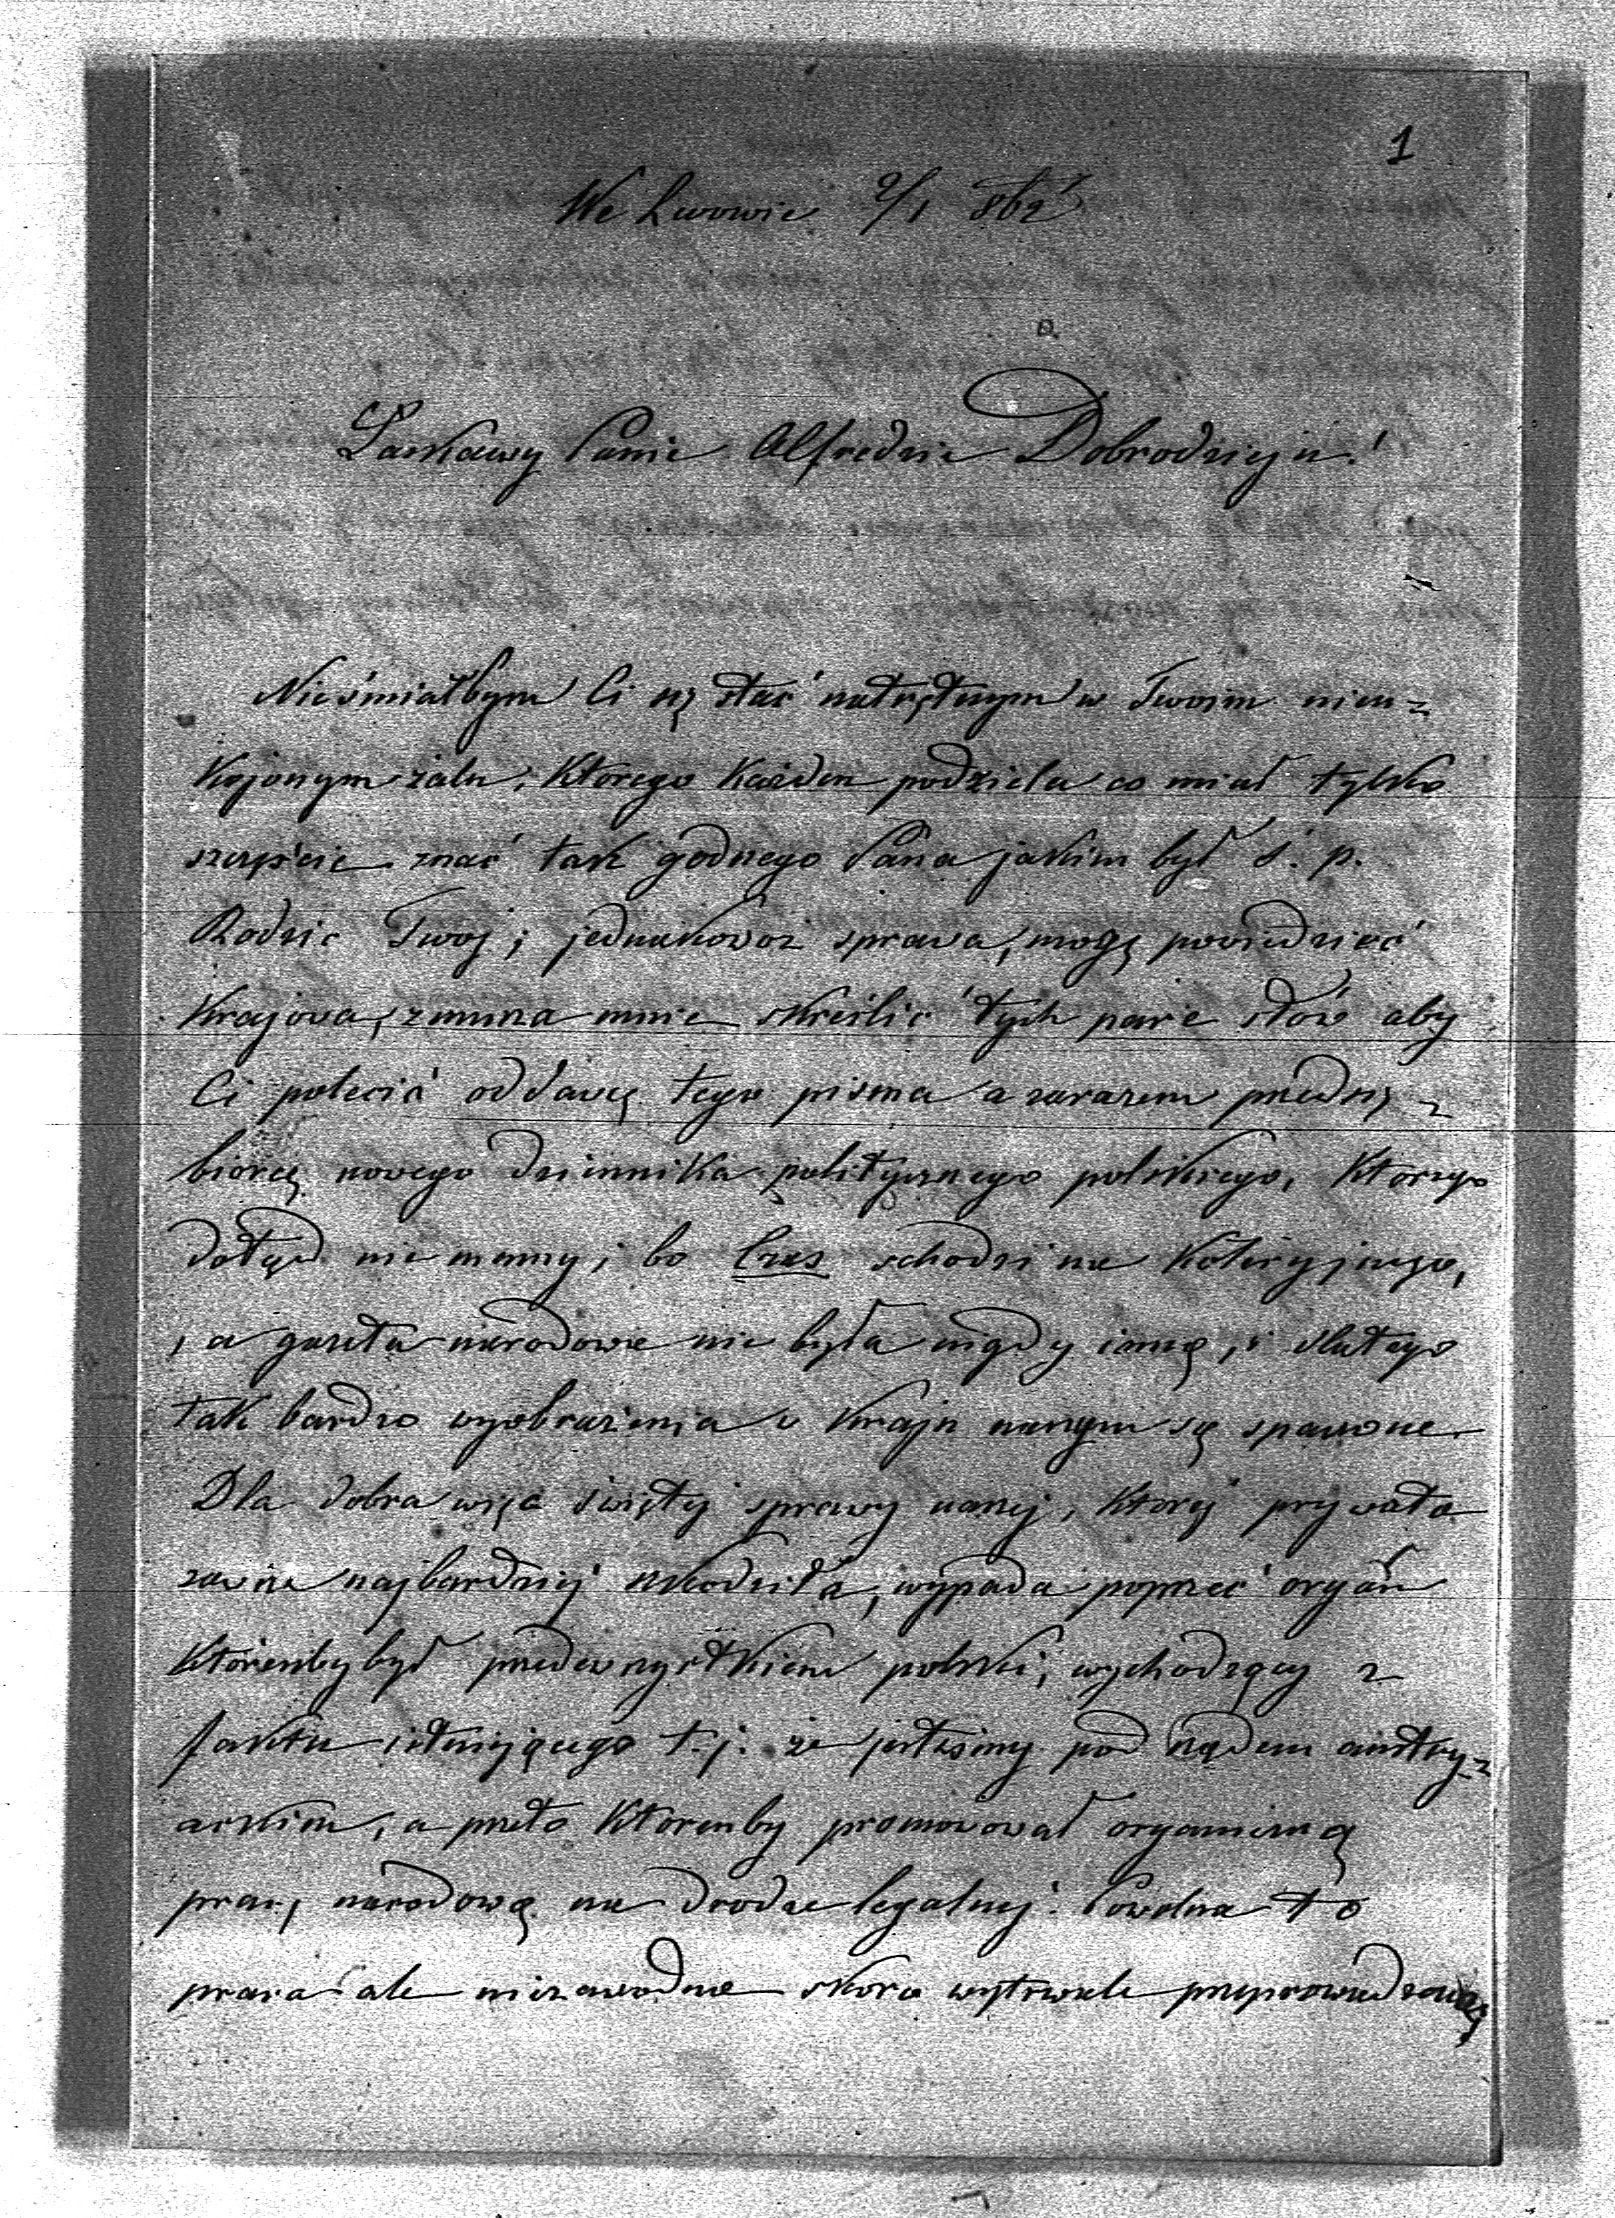 1
We Lwowie 9/1 862
Łaskawy Panie Alfredzie Dobrodzieju!
Nieśmiałbym Ci się stać natrętnym w Twoim nieu-
kojonym żalu, którego każden podziela co miał tylko
szczęście znać tak godnego Pana jakim był ś. p.
Rodzic Twoj; jednakowoż sprawa, mogę powiedzieć
krajowa, zmusza mnie skreślić tych parę słów aby
Ci polecić oddawcę tego pisma a zarazem przedsię-
biorcę nowego dziennika politycznego polskiego, którego
dotąd nie mamy; bo Czas schodzi na koteryjnego,
a gazeta narodowa nie była nigdy inną, i dlatego
tak bardzo wyobrażenia w kraju naszym są spaczone.
Dla dobra więc świętej sprawy naszej, której prywata
zawsze najbardziej szkodziła, wypada poprzeć organ
którenby był przedewszystkiem polski, wychodzący z
faktu istniejącego t. j. że jesteśmy pod rządem austry-
ackim, a przeto którenby promowował organiczną
pracę narodową na drodze legalnej. Powolna to
praca ale niezawodna skoro wytrwale przeprowadzoną